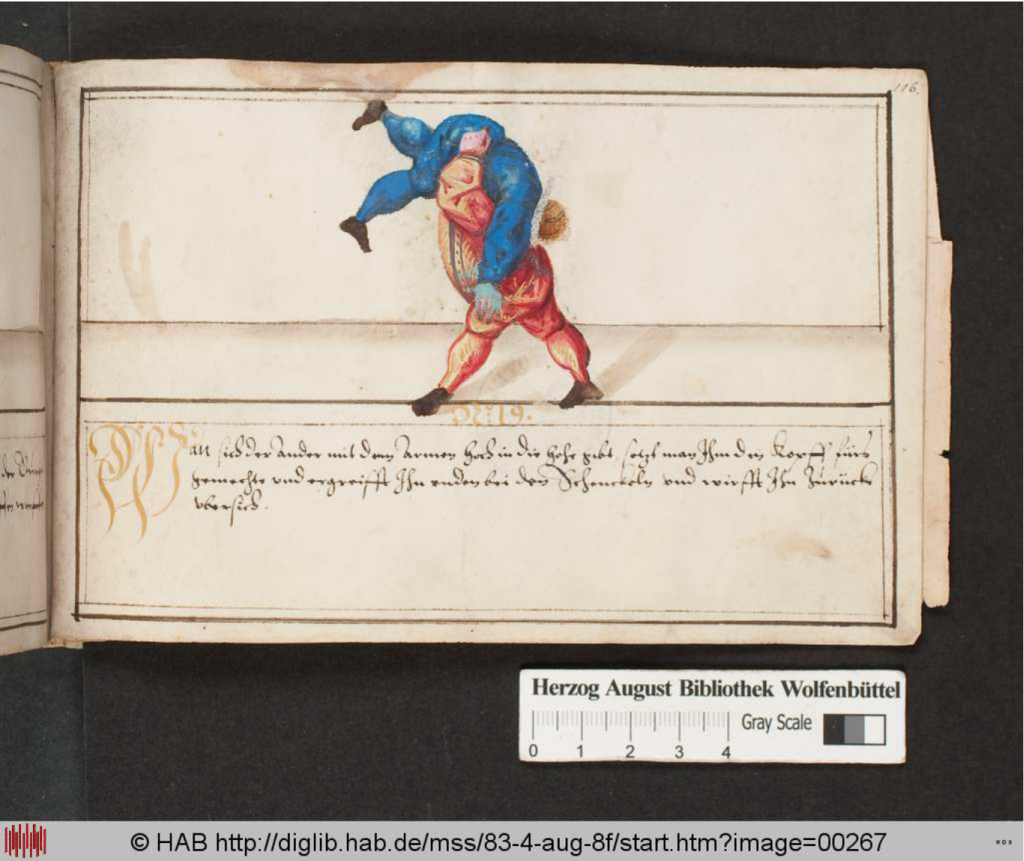 116.
Nº: 19.
Wan sich der Ander mit dem Armen hoch in die höhe gibt, setzt man Ihm den Kopff fürs
gemechte vnd ergreifft Ihn vnden bei den Schenckeln vnd wirfft Ihn Zurück
vbersich.
Herzog August Bibliothek Wolfenbüttel
Gray Scale
0 1 2 3 4
© HAB http://diglib.hab.de/mss/83-4-aug-8f/start.htm?image=00267